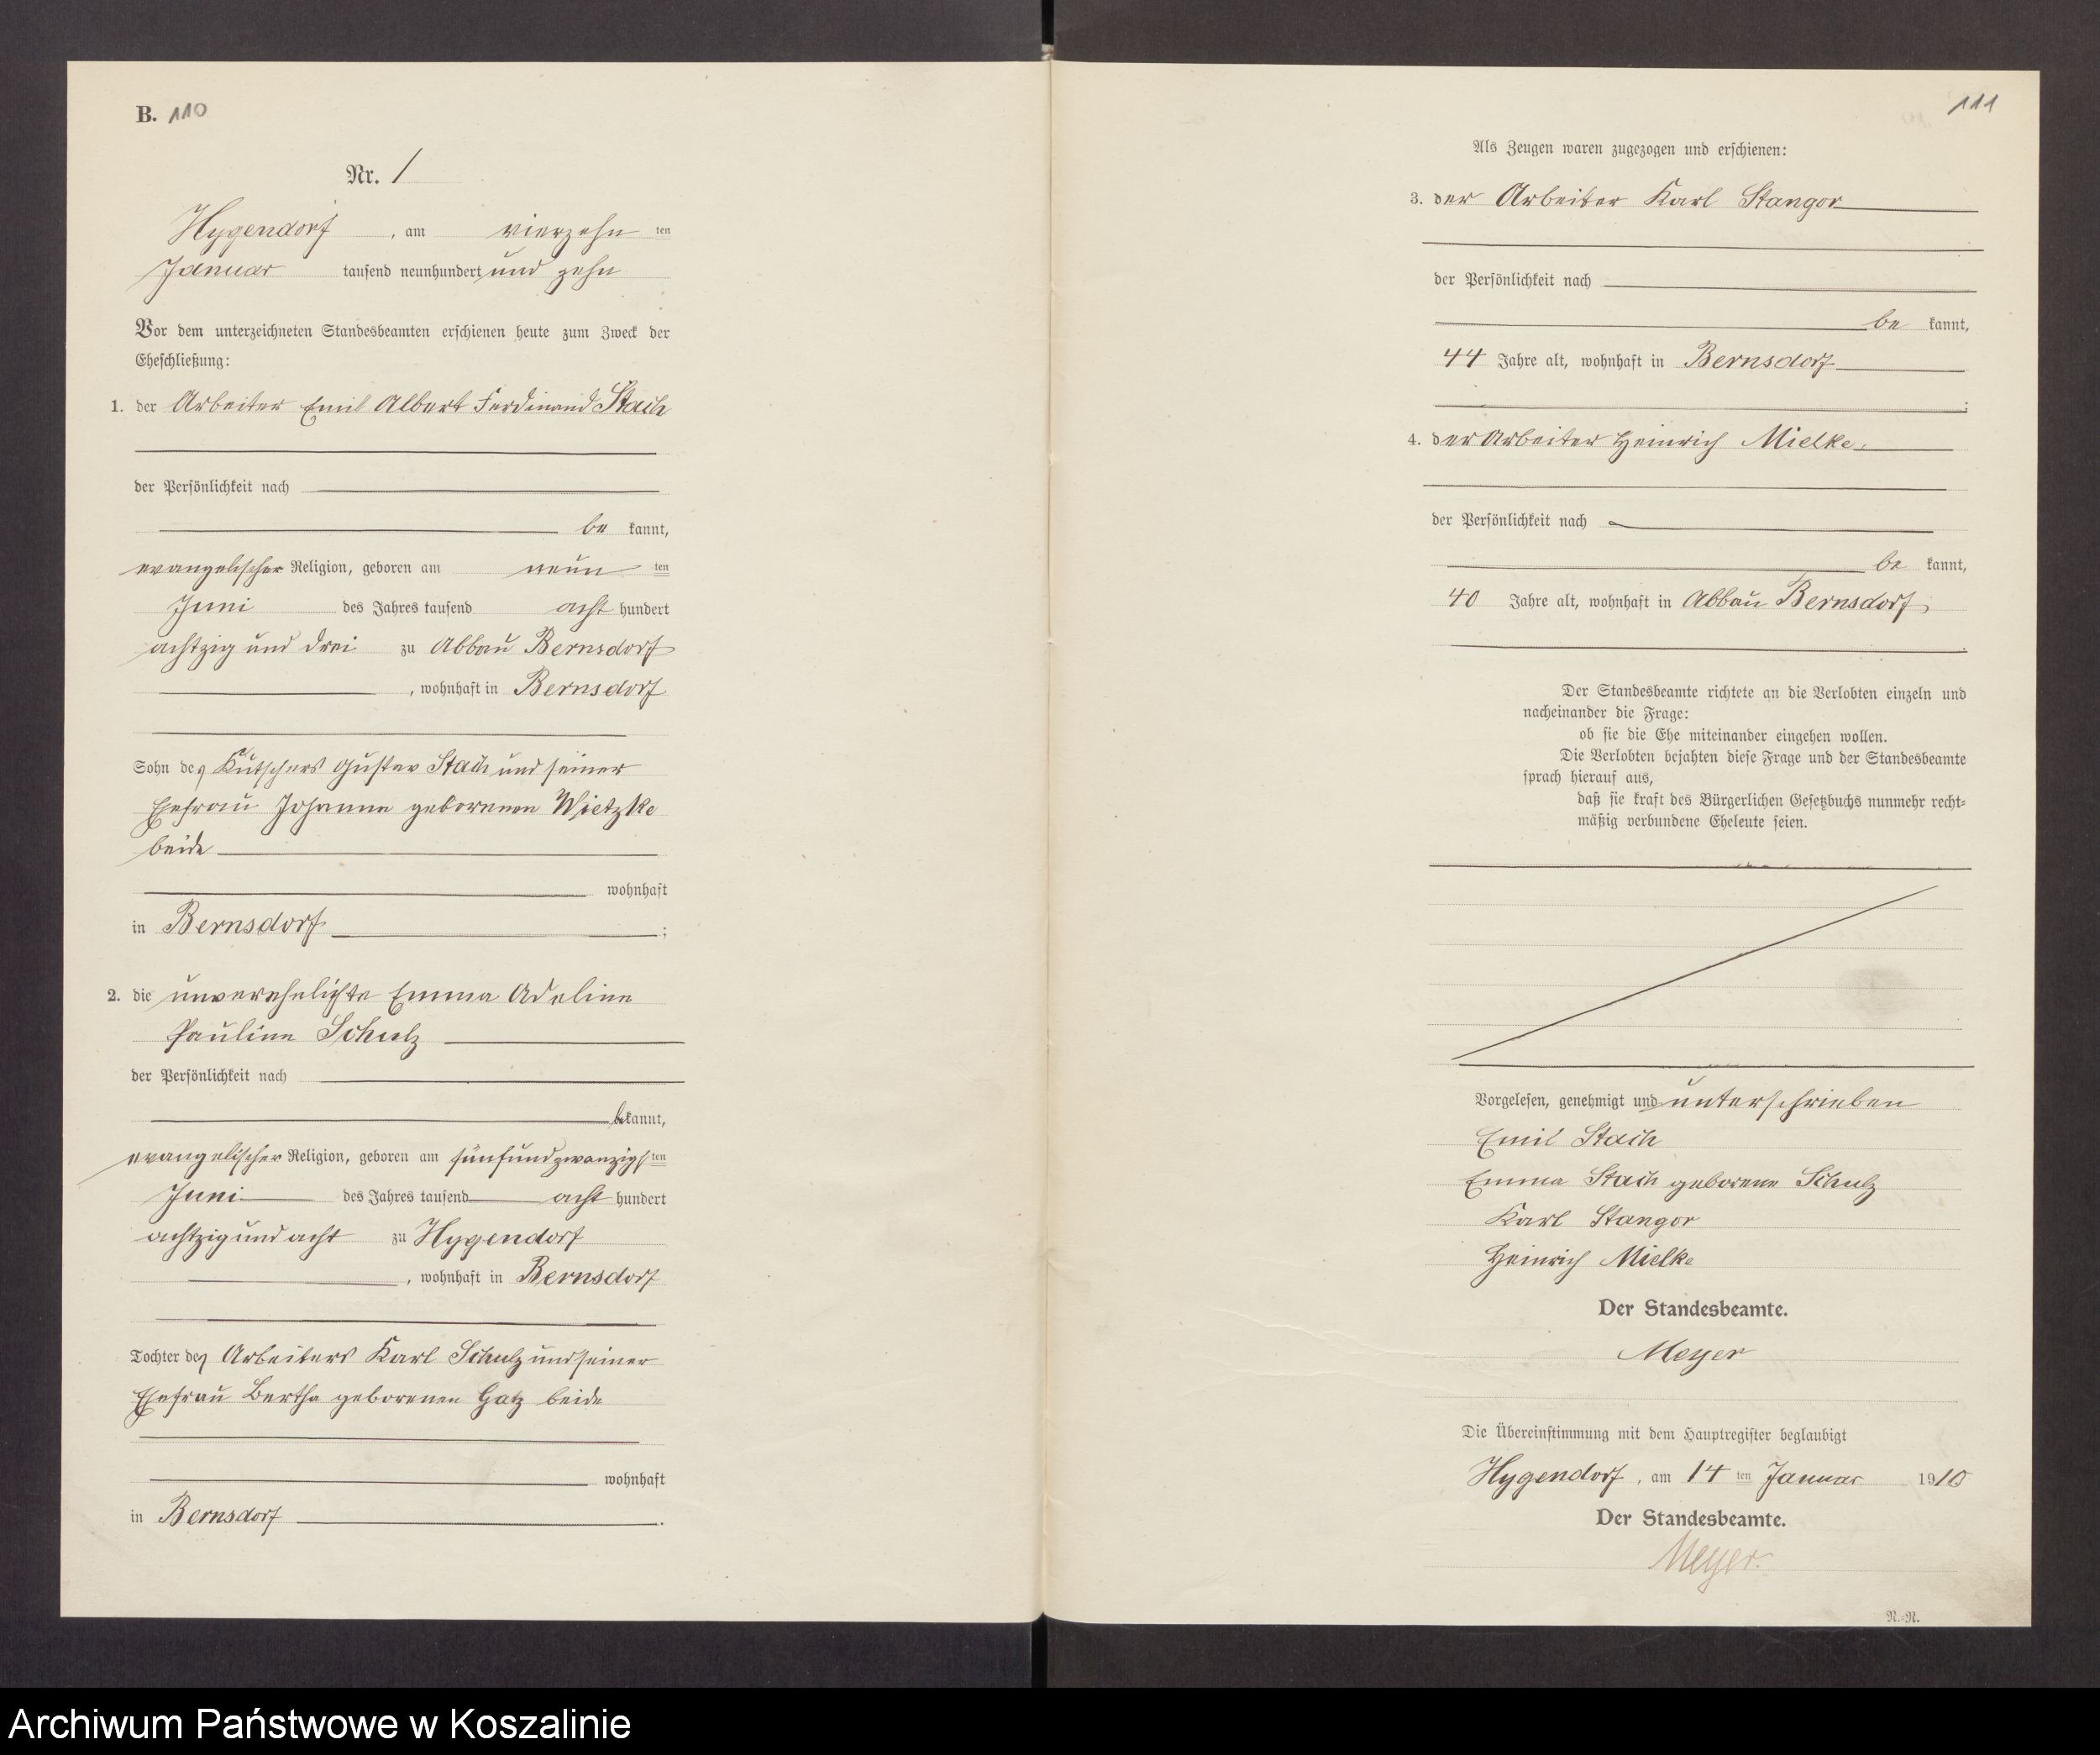 B. 110
Nr. 1
Hygendorf, am vierzehn ten
Januar tausend neunhundert und zehn
Vor dem unterzeichneten Standesbeamten erschienen heute zum Zweck der
Eheschließung:
1. der Arbeiter Emil Albert Ferdinand Stach
der Persönlichkeit nach
be kannt,
evangelischer Religion, geboren am neun ten
Juni des Jahres tausend acht hundert
achtzig und drei zu Abbau Bernsdorf
, wohnhaft in Bernsdorf
Sohn des Kutschers Gustav Stach und seiner
Ehefrau Johanne geborenen Wietzke
beide
wohnhaft
in Bernsdorf ;
2. die unverehelichte Emma Adeline
Pauline Schulz
der Persönlichkeit nach
bekannt,
evangelischer Religion, geboren am fünfundzwanzigsten
Juni des Jahres tausend acht hundert
achtzig und acht zu Hygendorf
, wohnhaft in Bernsdorf
Tochter des Arbeiters Karl Schulz und seiner
Ehefrau Bertha geborenen Gatz beide
wohnhaft
in Bernsdorf .
111
Als Zeugen waren zugezogen und erschienen:
3. der Arbeiter Karl Stangor
der Persönlichkeit nach
be kannt,
44 Jahre alt, wohnhaft in Bernsdorf
;
4. der Arbeiter Heinrich Mielke
der Persönlichkeit nach
be kannt,
40 Jahre alt, wohnhaft in Abbau Bernsdorf
.
Der Standesbeamte richtete an die Verlobten einzeln und
nacheinander die Frage:
ob sie die Ehe miteinander eingehen wollen.
Die Verlobten bejahten diese Frage und der Standesbeamte
sprach hierauf aus,
daß sie kraft des Bürgerlichen Gesetzbuchs nunmehr recht-
mäßig verbundene Eheleute seien.
Vorgelesen, genehmigt und unterschrieben
Emil Stach
Emma Stach geborene Schulz
Karl Stangor
Heinrich Mielke
Der Standesbeamte.
Meyer
Die Übereinstimmung mit dem Hauptregister beglaubigt
Hygendorf, am 14 ten Januar 1910
Der Standesbeamte.
Meyer.
N.-N.
Archiwum Państwowe w Koszalinie